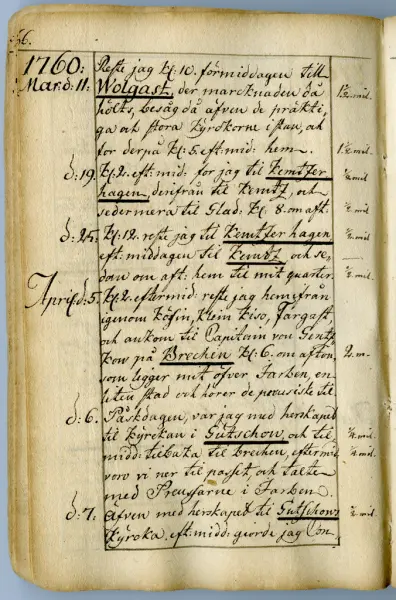 56.
1760. Reste jag kl: 10. förmiddagen till
Mars d: 11: Wolgast, der marcknaden då 1½ mil.
hölts, besåg då äfven de präkti,
ga och stora kyrckorne i stan, och
for derpå kl: 5. eft: mid: hem. 1½ mil
d: 19. kl: 2. eft: mid: for jag til Kemtzer ¼ mil
hagen, derifrån til Kemtz, och
sedermera til Glad: kl: 8. om aft: ½ mil
d: 25. kl: 12. reste jag til Kemtzer hagen ¼ mil
eft: middagen til Kemtz, och se,
dan om aft: hem til mit quarter. ½ mil.
April d: 5. kl: 2. eftermid: reste jag hemifrån
igenom Käsin, Klein Kiso, Jargast
och ankom til Capitain von Gentz
kow på Brechen kl: 6. om afton, 2. m.
som ligger mit öfver Jarben, en
liten stad och hörer de preusiske til.
d: 6. Påskdagen, var jag med herskapet
til kyrckan i Gütschow, och til ¼ mil.
midd: tilbaka til Brechen, eftermid ¼ mil.
voro vi ner til passet, och talte
med Preussarne i Jarben.
d: 7. Äfven med herskapet til Gutschow ¼ mil.
kyrcka, eft: mid: giorde jag Con,